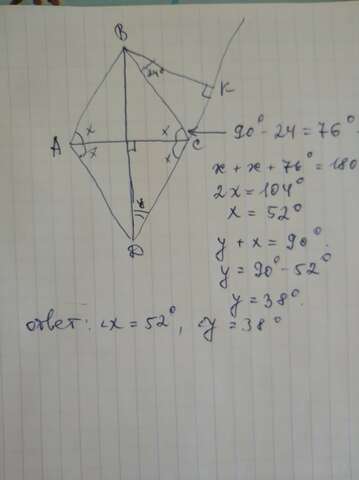 B
24°
K
A x x C
x x
90° - 24 = 76°
x + x + 76° = 180
2x = 104°
x = 52°
y + x = 90°.
y = 90° - 52°
y = 38°.
y
D
ответ: ∠x = 52°, ∠y = 38°